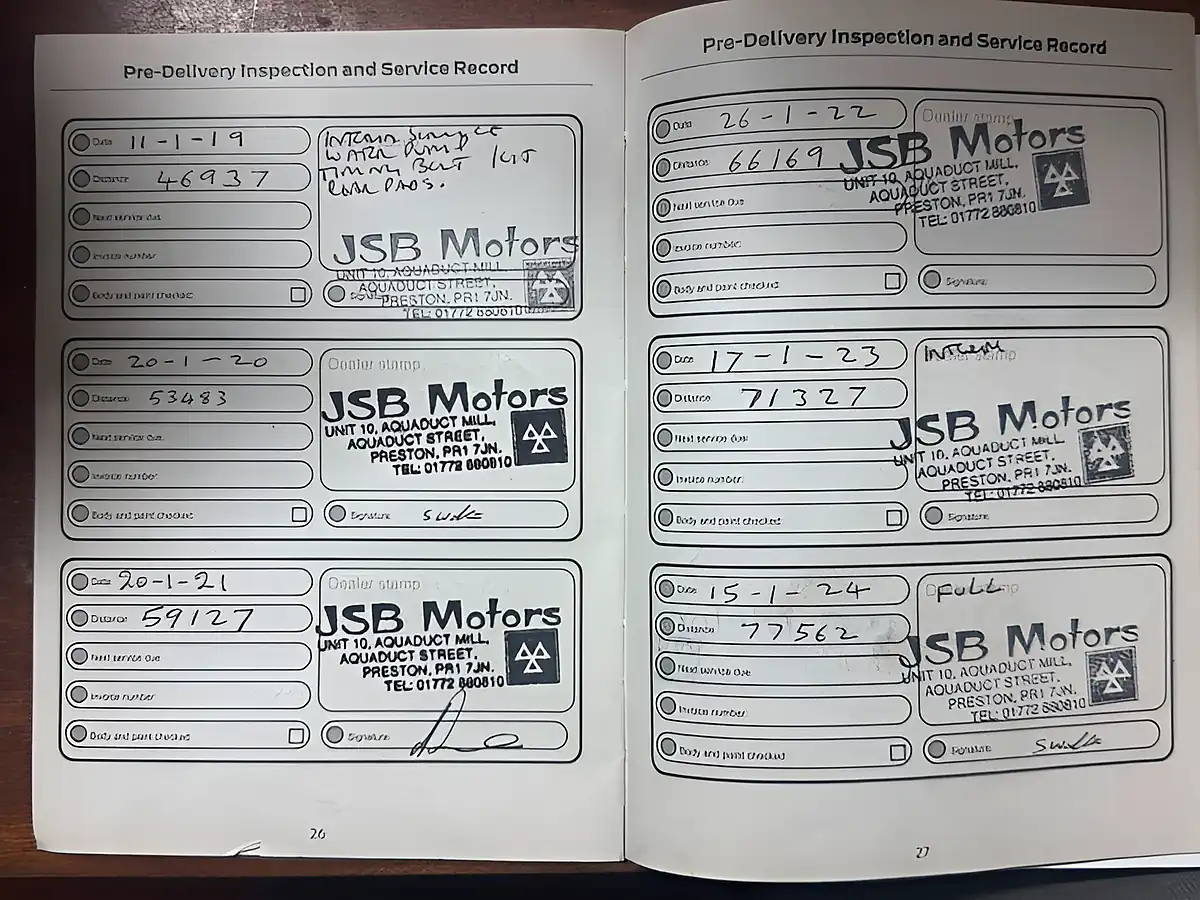 Pre-Delivery Inspection and Service Record
Date 11-1-19
Distance 46937
Next service due
Invoice number
Body and paint checked
INTERIM SERVICE
WATER PUMP
TIMING BELT KIT
REAR PADS.
JSB Motors
UNIT 10, AQUADUCT MILL,
AQUADUCT STREET,
PRESTON, PR1 7JN.
TEL: 01772 880810
Date 20-1-20
Distance 53483
Next service due
Invoice number
Body and paint checked
Dealer stamp
JSB Motors
UNIT 10, AQUADUCT MILL,
AQUADUCT STREET,
PRESTON, PR1 7JN.
TEL: 01772 880810
Signature
Date 20-1-21
Distance 59127
Next service due
Invoice number
Body and paint checked
Dealer stamp
JSB Motors
UNIT 10, AQUADUCT MILL,
AQUADUCT STREET,
PRESTON, PR1 7JN.
TEL: 01772 880810
Signature
26
Pre-Delivery Inspection and Service Record
Date 26-1-22
Distance 66169
Next service due
Invoice number
Body and paint checked
Dealer stamp
JSB Motors
UNIT 10, AQUADUCT MILL,
AQUADUCT STREET,
PRESTON, PR1 7JN.
TEL: 01772 880810
Signature
Date 17-1-23
Distance 71327
Next service due
Invoice number
Body and paint checked
INTERIM
stamp
JSB Motors
UNIT 10, AQUADUCT MILL,
AQUADUCT STREET,
PRESTON, PR1 7JN.
TEL: 01772 880810
Signature
Date 15-1-24
Distance 77562
Next service due
Invoice number
Body and paint checked
FULL
JSB Motors
UNIT 10, AQUADUCT MILL,
AQUADUCT STREET,
PRESTON, PR1 7JN.
TEL: 01772 880810
Signature
27